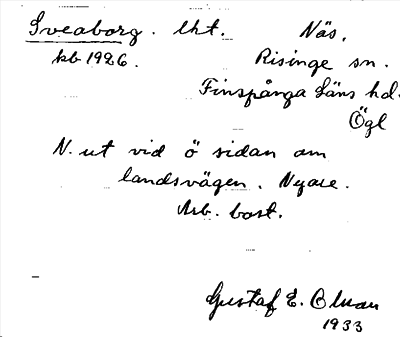 Sveaborg. lht. Näs.
kb 1926. Risinge sn.
Finspånga Läns hd.
Ögl
N. ut vid ö sidan om
landsvägen. Nyare.
Arb. bost.
Gustaf E. Olman
1933